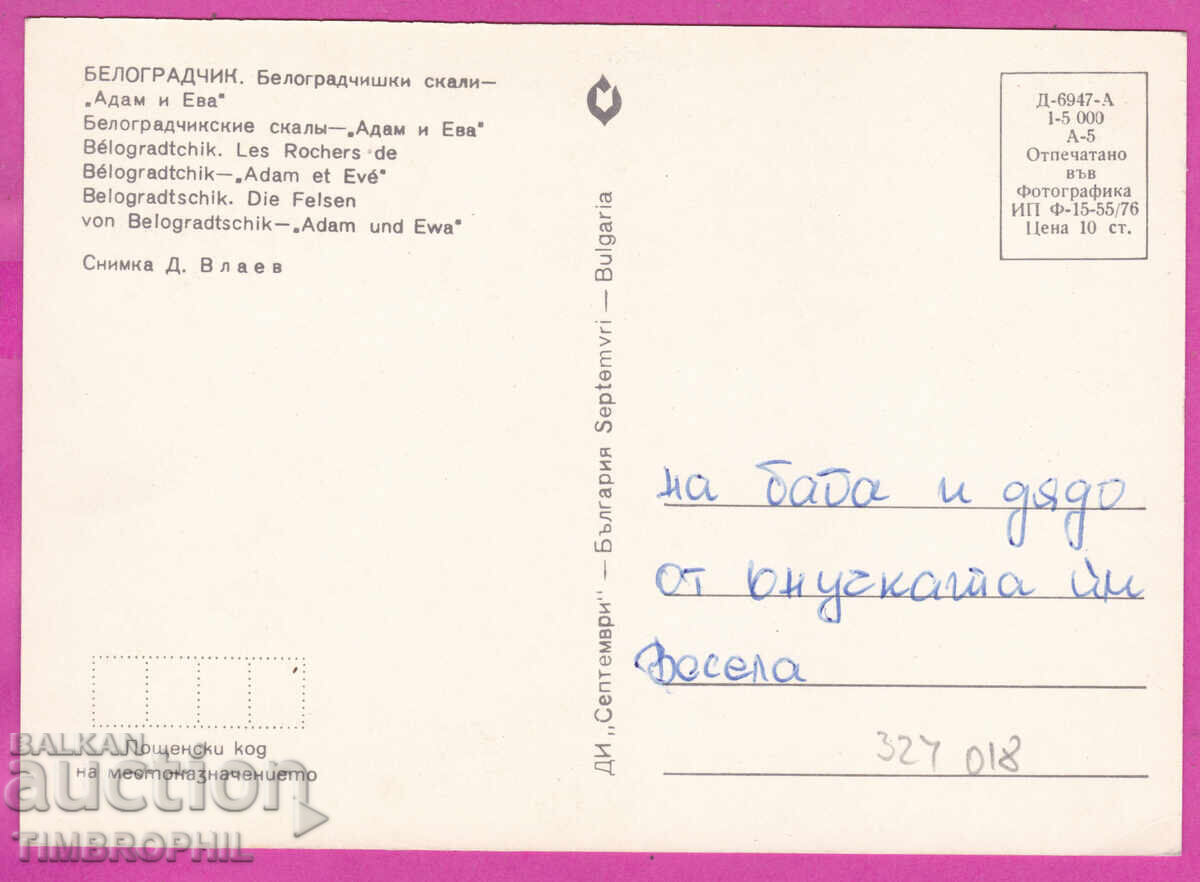 БЕЛОГРАДЧИК. Белоградчишки скали—
„Адам и Ева"
Белоградчикские скалы—„Адам и Ева"
Bélogradtchik. Les Rochers de
Bélogradtchik—„Adam et Evé"
Belogradtschik. Die Felsen
von Belogradtschik—„Adam und Ewa"
Снимка Д. Влаев
ДИ „Септември" — България Septemvri — Bulgaria
Д-6947-А
1-5 000
А-5
Отпечатано
във
Фотографика
ИП Ф-15-55/76
Цена 10 ст.
на баба и дядо
от внучката им
Весела
324 018
Пощенски код
на местоназначението
BALKAN
auction
TIMBROPHIL